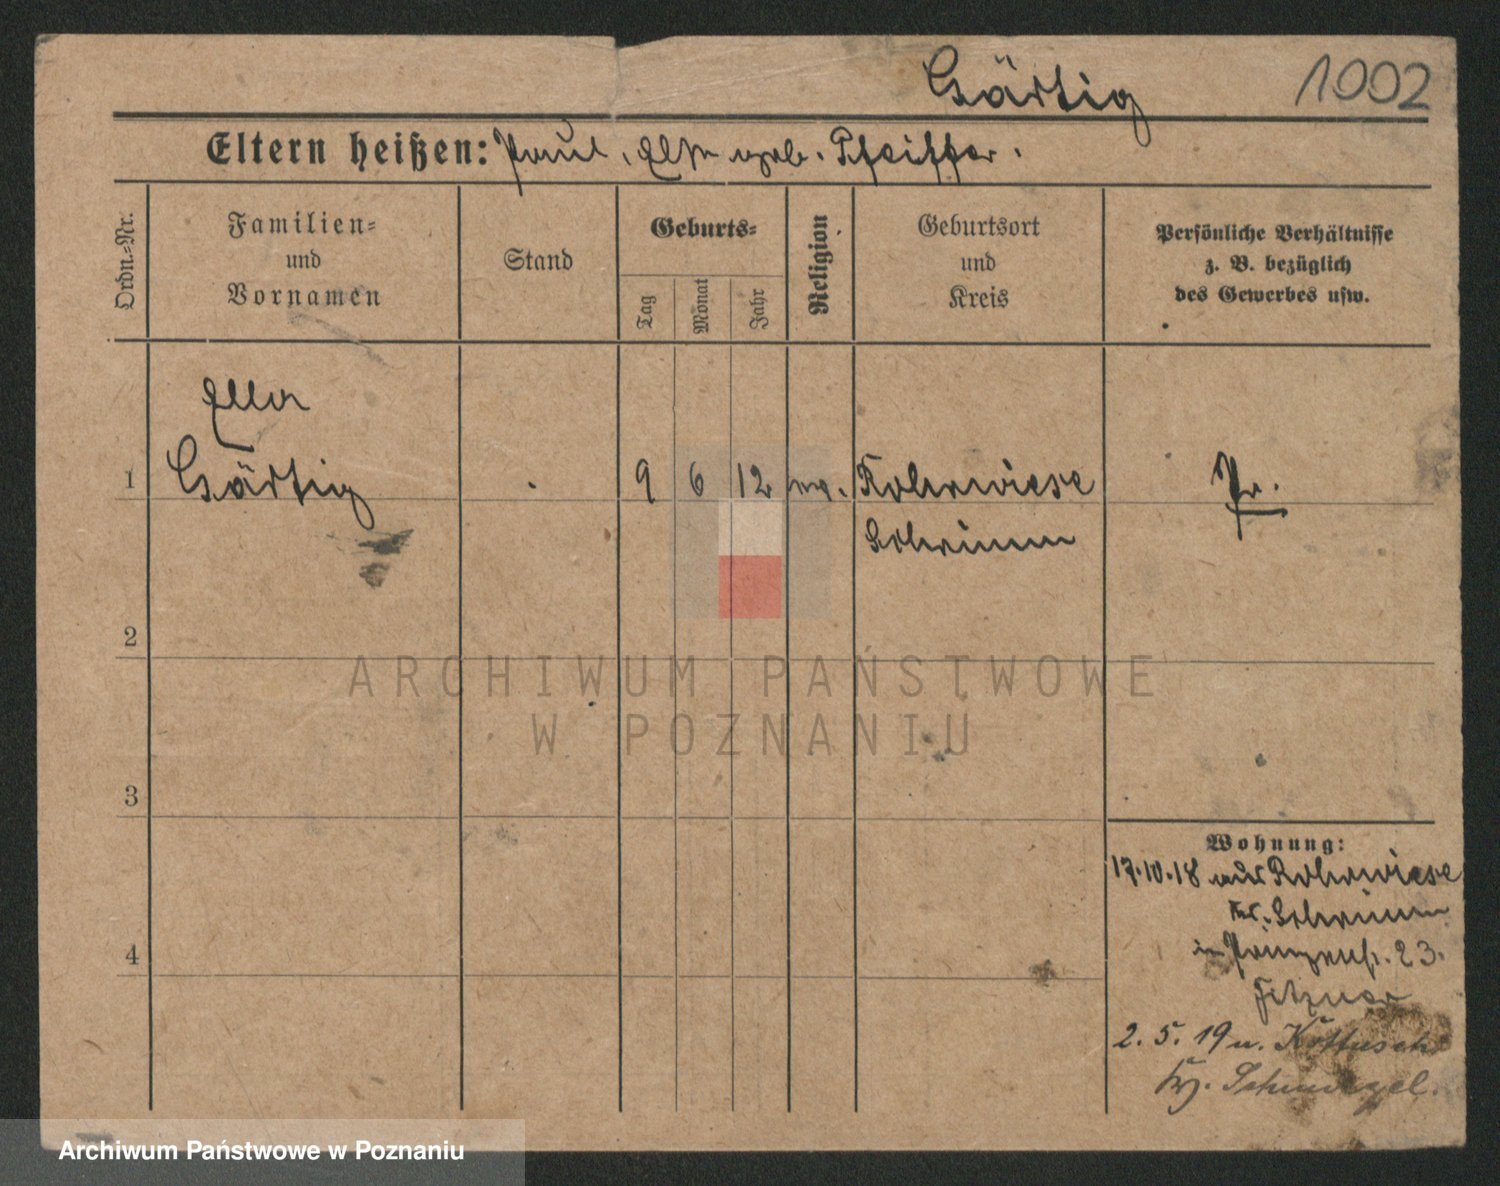 Gärtig 1002
Eltern heißen: Paul, Else geb. Pfeiffer.
Ordn.-Nr.
Familien-
und
Vornamen
Stand
Geburts-
Tag
Monat
Jahr
Religion
Geburtsort
und
Kreis
Persönliche Verhältnisse
z. B. bezüglich
des Gewerbes usw.
Ella
1 Gärtig 9 6 12 Rohrwiese Pr.
Schrimm
2
3
4
Wohnung:
17.10.18 aus Rohrwiese
Kr. Schrimm
in Prinzenstr. 23.
Fitzner
2. 5. 19 n.
ARCHIWUM PAŃSTWOWE
W POZNANIU
Archiwum Państwowe w Poznaniu